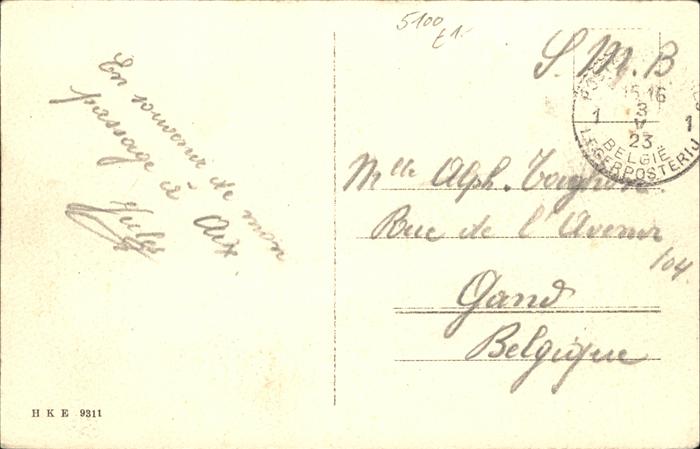 5100
£1-
En souvenir de mon
passage à Aix.
Jules
S. M. B
15-16
3
V
23
1 1
BELGIË
LEGERPOSTERIJ
Mlle Alph.
Rue de l'Avenir
104
Gand
Belgique
H K E 9311